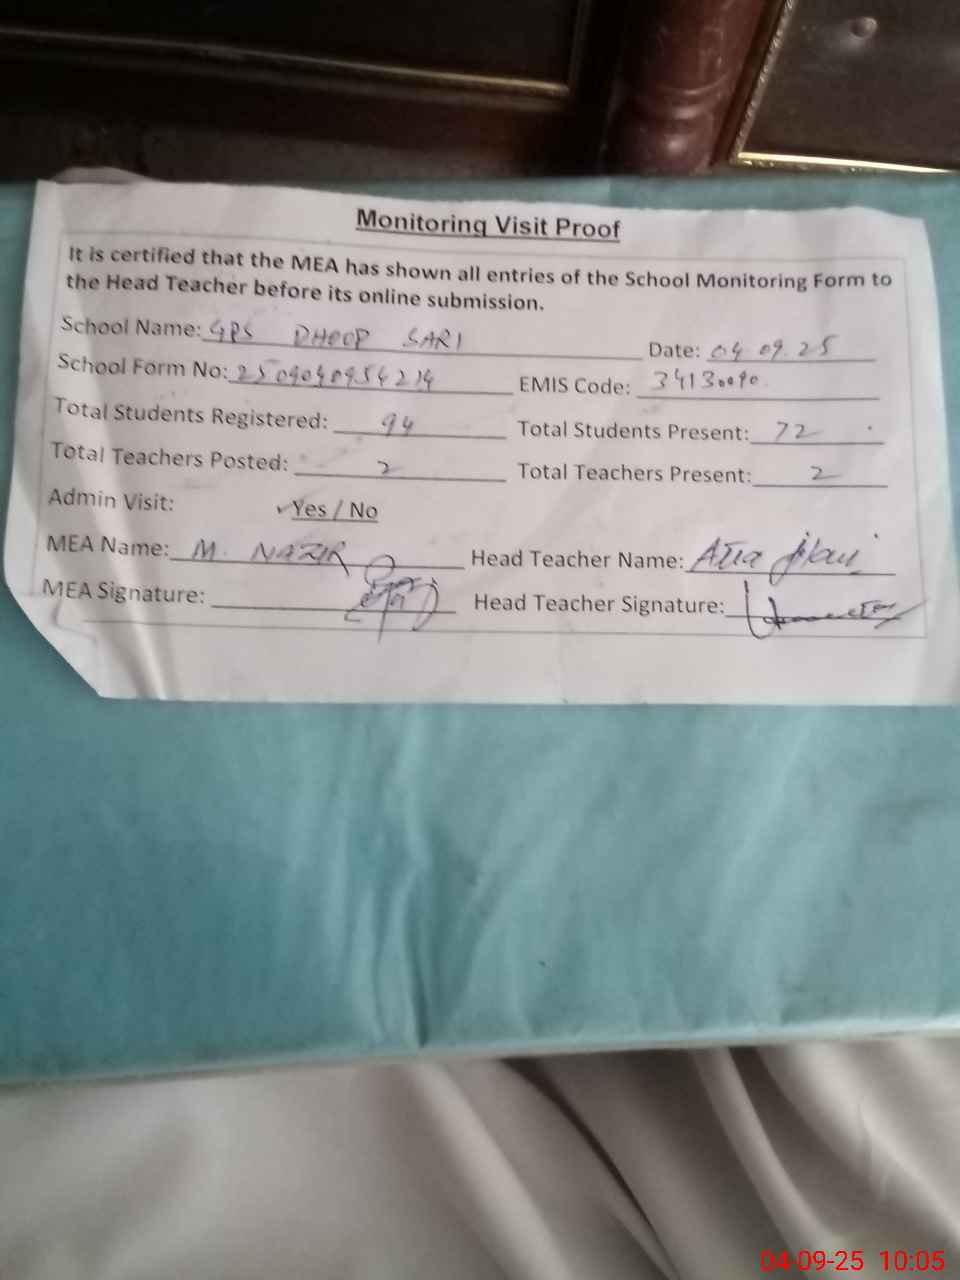 Monitoring Visit Proof
It is certified that the MEA has shown all entries of the School Monitoring Form to
the Head Teacher before its online submission.
School Name: GPS DHOOP SARI Date: 04.09.25
School Form No: EMIS Code: 34130090
Total Students Registered: 94 Total Students Present: 72
Total Teachers Posted: 2 Total Teachers Present: 2
Admin Visit: ✓Yes / No
MEA Name: M. NAZIR Head Teacher Name:
MEA Signature: Head Teacher Signature:
04-09-25 10:05